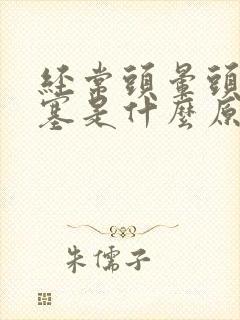 經常頭暈頭
塞是什麼原
朱儒子